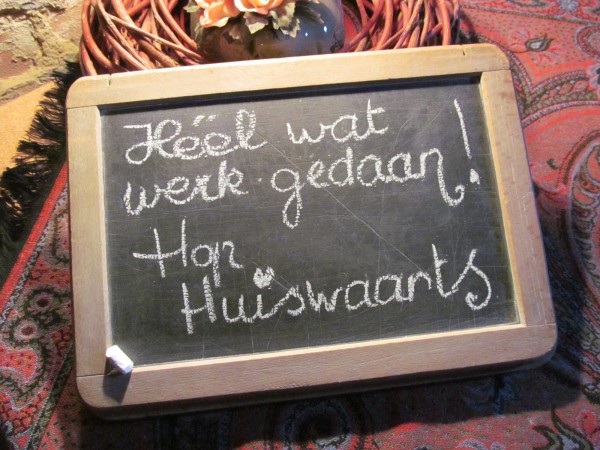 Héél wat
werk gedaan!
Hop
Huiswaarts